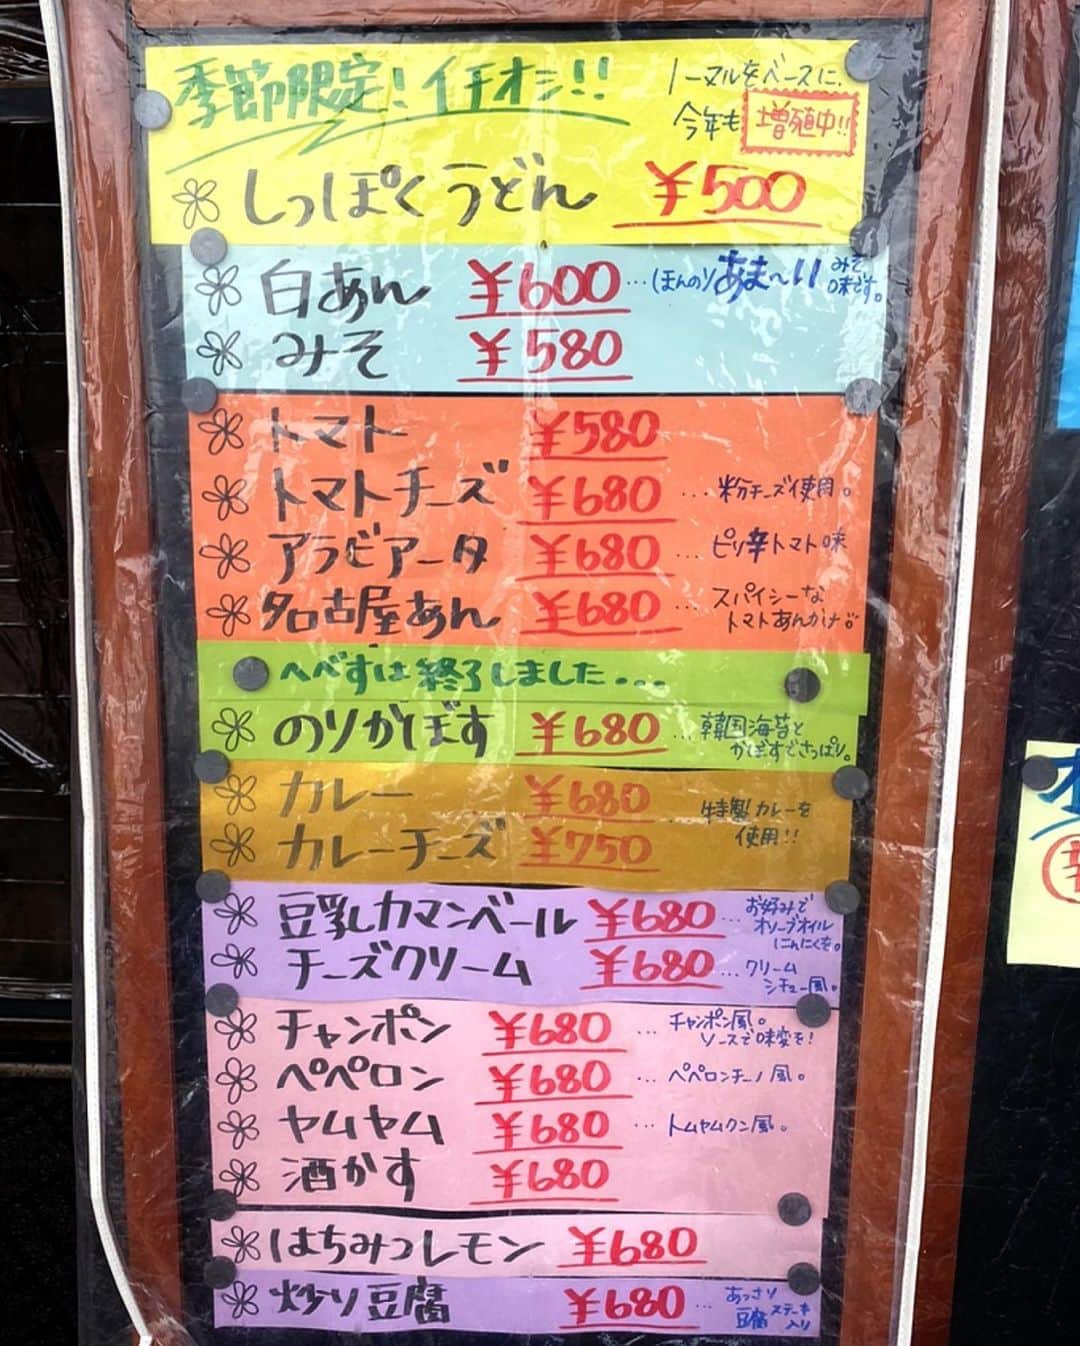 季節限定!イチオシ!!
ノーマルをベースに、
今年も 増殖中!!
しっぽくうどん ¥500
白あん ¥600 …ほんのりあま〜いみそ味です。
みそ ¥580
トマト ¥580
トマトチーズ ¥680 …粉チーズ使用。
アラビアータ ¥680 …ピリ辛トマト味
名古屋あん ¥680 …スパイシーな
トマトあんかけ
へべすは終了しました...
のりかぼす ¥680 …韓国海苔と
かぼすでさっぱり。
カレー ¥680
特製カレーを
使用!!
カレーチーズ ¥750
豆乳カマンベール ¥680 …お好みで
オリーブオイル
にんにくを。
チーズクリーム ¥680 …クリーム
シチュー風。
チャンポン ¥680 …チャンポン風。
ソースで味変を!
ペペロン ¥680 …ペペロンチーノ風。
ヤムヤム ¥680 …トムヤムクン風。
酒かす ¥680
はちみつレモン ¥680
炒り豆腐 ¥680 …あっさり
豆腐ステーキ
入り